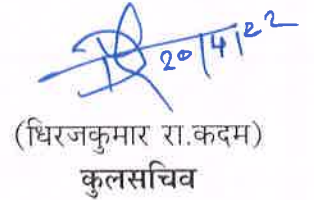 20/4/22
(धिरजकुमार रा.कदम)
कुलसचिव